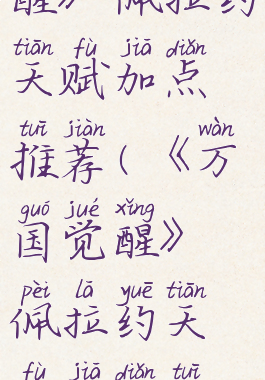 醒》佩拉约
tiān fù jiā diǎn
天赋加点
tuī jiàn wàn
推荐（《万
guó jué xǐng
国觉醒》
pèi lā yuē tiān
佩拉约天
fù jiā diǎn tuī